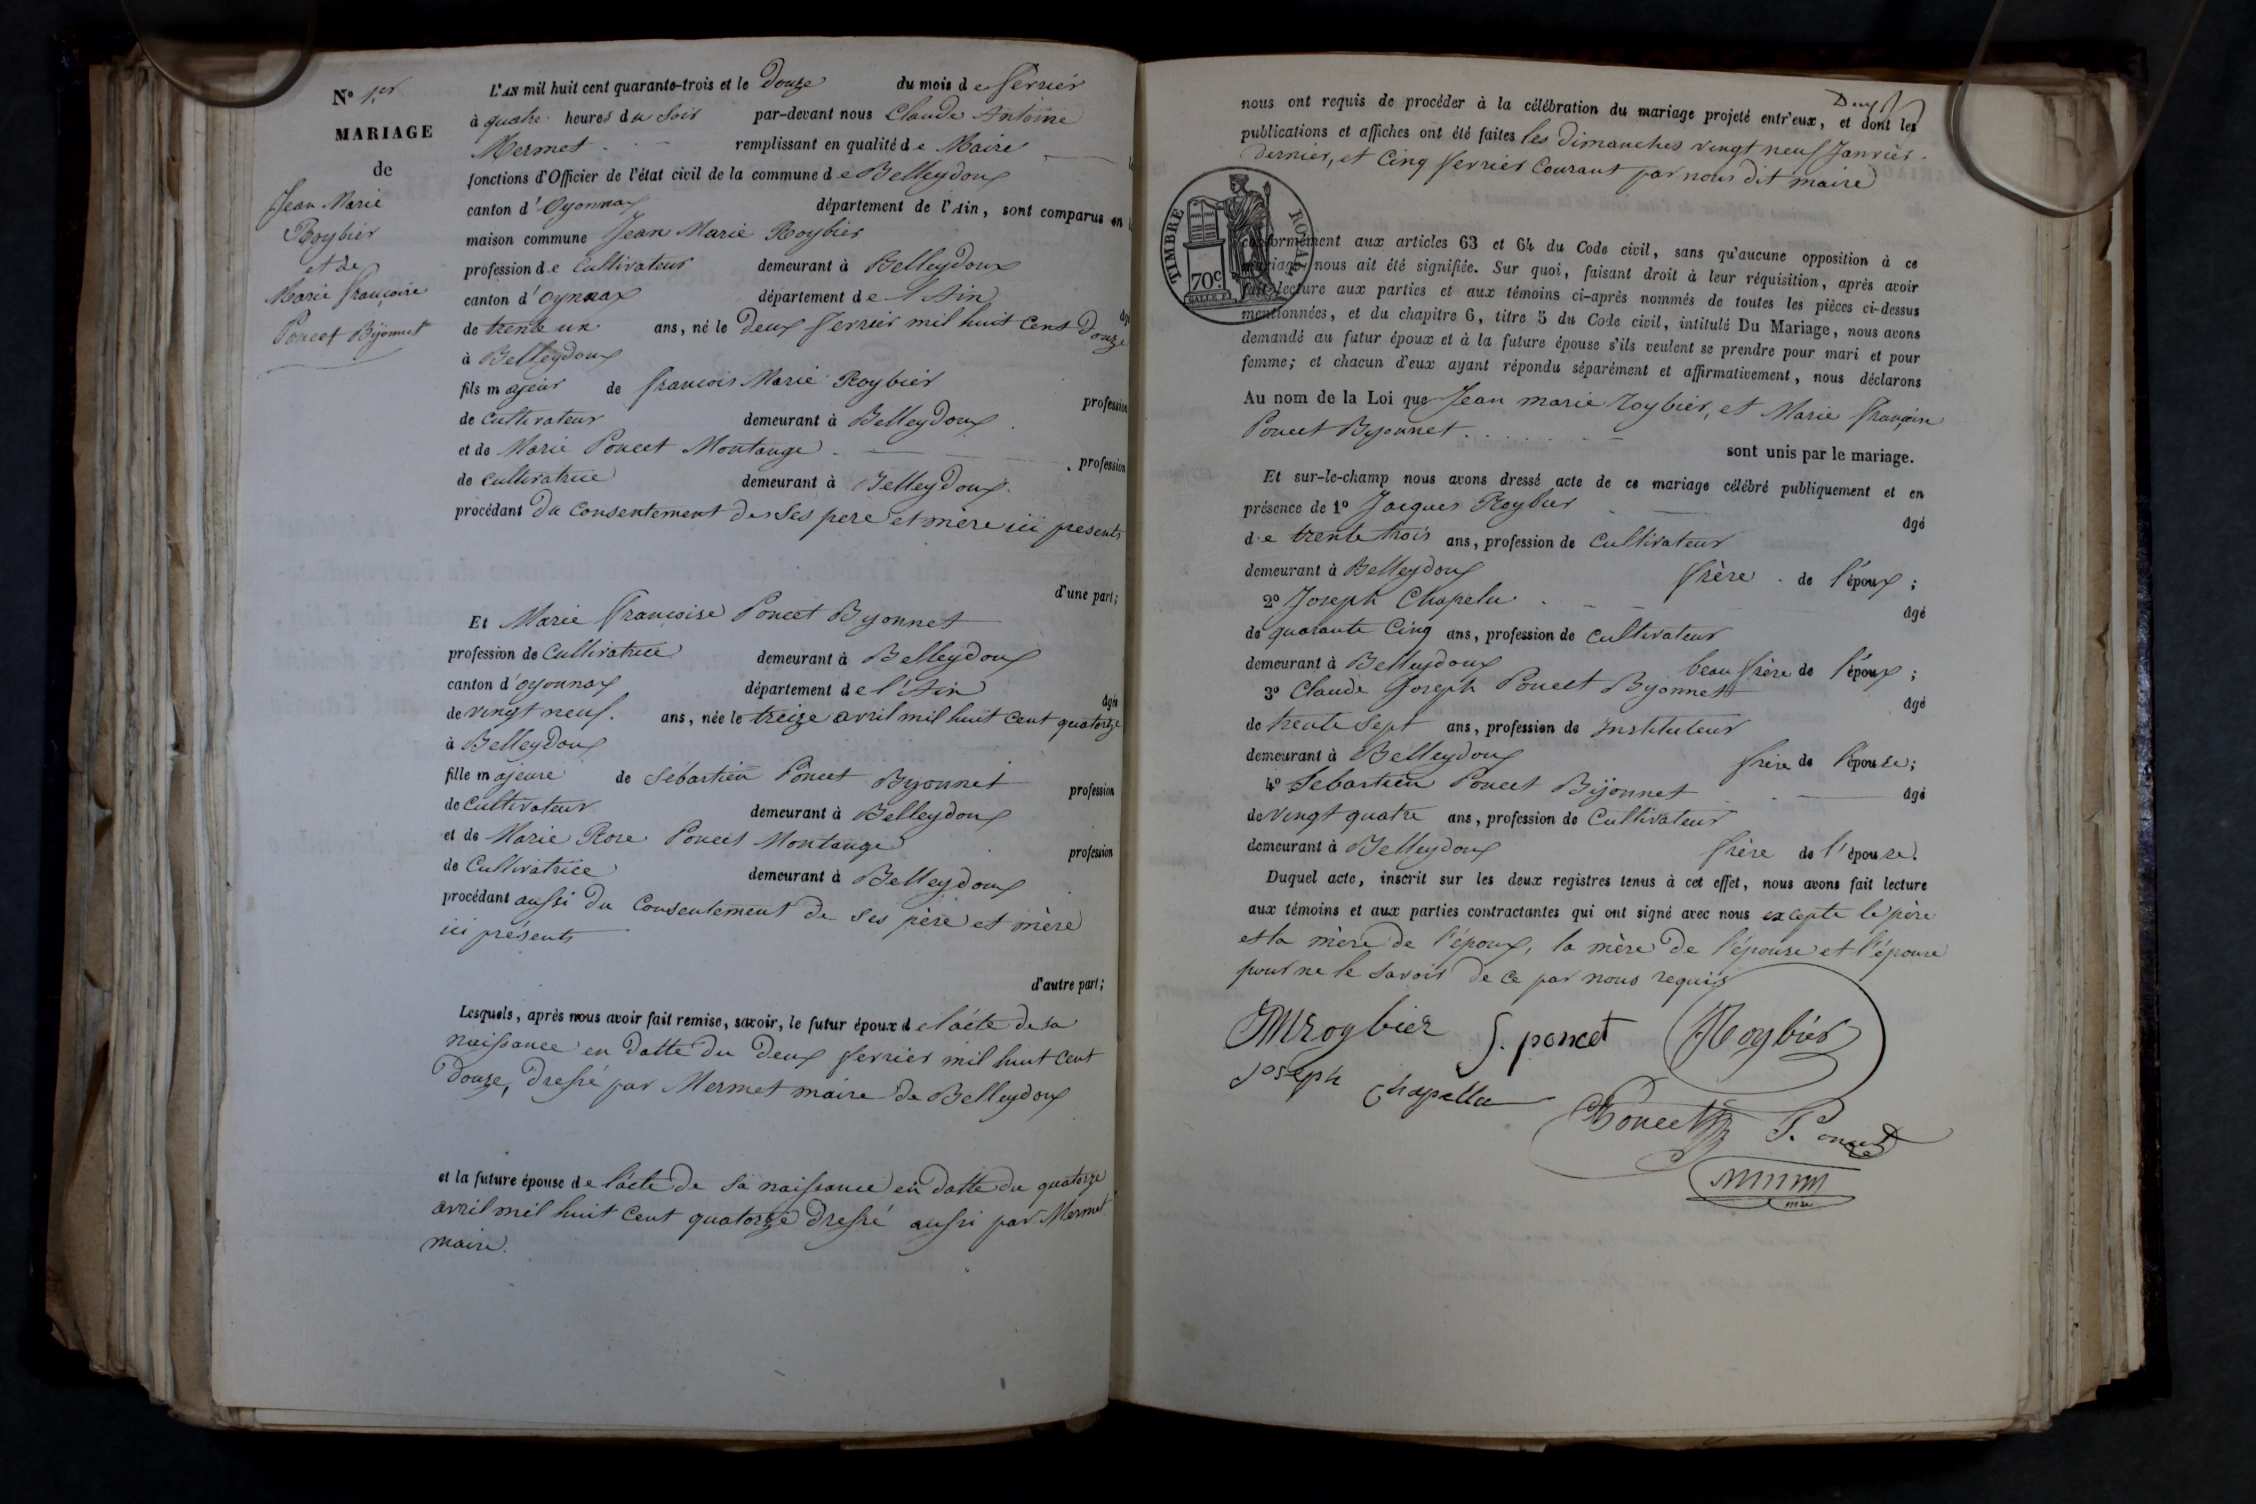 N° 1er
MARIAGE
de
Jean Marie
Roybier
et de
Marie françoise
Poncet Bÿonnet
L'AN mil huit cent quarante-trois et le Douze du mois de fevrier
à quatre heures du soir par-devant nous Claude Antoine
Mermet remplissant en qualité de Maire
fonctions d'Officier de l'état civil de la commune de Belleydoux
canton d'Oyonnax département de l'Ain, sont comparus en
maison commune Jean Marie Roybier
profession de Cultivateur demeurant à Belleydoux
canton d'oynnax département de l'Ain
âgé
de trente un ans, né le Deux fevrier mil huit cent Douze
à Belleydoux
fils majeur de francois Marie Roybier
profession
de Cultivateur demeurant à Belleydoux
et de Marie Poncet Montange
profession
de Cultivatrice demeurant à Belleydoux
procédant du Consentement de ses pere et mère ici presents
d'une part;
Et Marie françoise Poncet Byonnet
profession de Cultivatrice demeurant à Belleydoux
canton d'oyonnax département de l'Ain
âgée
de vingt neuf ans, née le treize avril mil huit cent quatorze
à Belleydoux
fille majeure de sébastien Poncet Byonnet
profession
de Cultivateur demeurant à Belleydoux
et de Marie Rose Poncet Montange
profession
de Cultivatrice demeurant à Belleydoux
procédant aussi du Consentement de ses père et mère
ici présents
d'autre part;
Lesquels, après nous avoir fait remise, savoir, le futur époux de l'acte de sa
naissance en datte du Deux fevrier mil huit cent
Douze, Dressé par Mermet maire de Belleydoux
et la future épouse de l'acte de sa naissance en datte du quatorze
avril mil huit cent quatorze Dressé aussi par Mermet
maire.
Deux
nous ont requis de procéder à la célébration du mariage projeté entr'eux, et dont les
publications et affiches ont été faites les dimanches vingt neuf Janvier
dernier, et Cinq fevrier Courant par nous dit maire
TIMBRE ROYAL
70c
conformément aux articles 63 et 64 du Code civil, sans qu'aucune opposition à ce
mariage nous ait été signifiée. Sur quoi, faisant droit à leur réquisition, après avoir
fait lecture aux parties et aux témoins ci-après nommés de toutes les pièces ci-dessus
mentionnées, et du chapitre 6, titre 5 du Code civil, intitulé Du Mariage, nous avons
demandé au futur époux et à la future épouse s'ils veulent se prendre pour mari et pour
femme; et chacun d'eux ayant répondu séparément et affirmativement, nous déclarons
Au nom de la Loi que Jean marie roybier, et Marie françoise
Poncet Byonnet
sont unis par le mariage.
Et sur-le-champ nous avons dressé acte de ce mariage célébré publiquement et en
présence de 1° Jacques Roybier
âgé
de trente trois ans, profession de Cultivateur
demeurant à Belleydoux frère de l'époux;
2° Joseph Chapelu
âgé
de quarante Cinq ans, profession de Cultivateur
demeurant à Belleydoux beau frère de l'époux;
3° Claude Joseph Poncet Byonnet
âgé
de trente sept ans, profession de Instituteur
demeurant à Belleydoux frère de l'épouse;
4° Sebastien Poncet Bÿonnet
âgé
de vingt quatre ans, profession de Cultivateur
demeurant à Belleydoux frère de l'épouse.
Duquel acte, inscrit sur les deux registres tenus à cet effet, nous avons fait lecture
aux témoins et aux parties contractantes qui ont signé avec nous excepte le père
et la mère de l'époux, la mère de l'épouse et l'épouse
pour ne le savoir de ce par nous requis
JMroybier S. poncet JRoybier
Joseph Chapellu
Poncet
mre